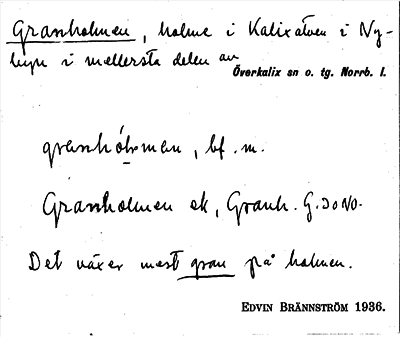 Granholmen, holme i Kalixälven i Ny-
byn i mellersta delen av
Överkalix sn o. tg. Norrb. l.
granhólman, bf. m.
Granholmen ek, Granh. G. 30 NO.
Det växer mest gran på holmen.
EDVIN BRÄNNSTRÖM 1936.